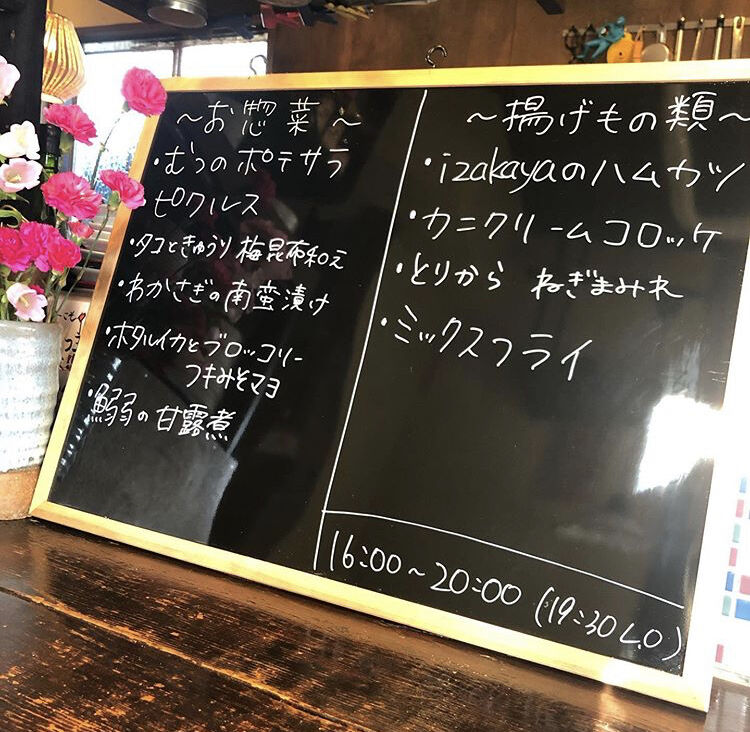 ～お惣菜～
・むつのポテサラ
ピクルス
・タコときゅうり 梅昆布和え
・わかさぎの南蛮漬け
・ホタルイカとブロッコリー
フキみそマヨ
・鰯の甘露煮
～揚げもの類～
・izakayaのハムカツ
・カニクリームコロッケ
・とりから ねぎまみれ
・ミックスフライ
16:00～20:00 (19:30 L.O)